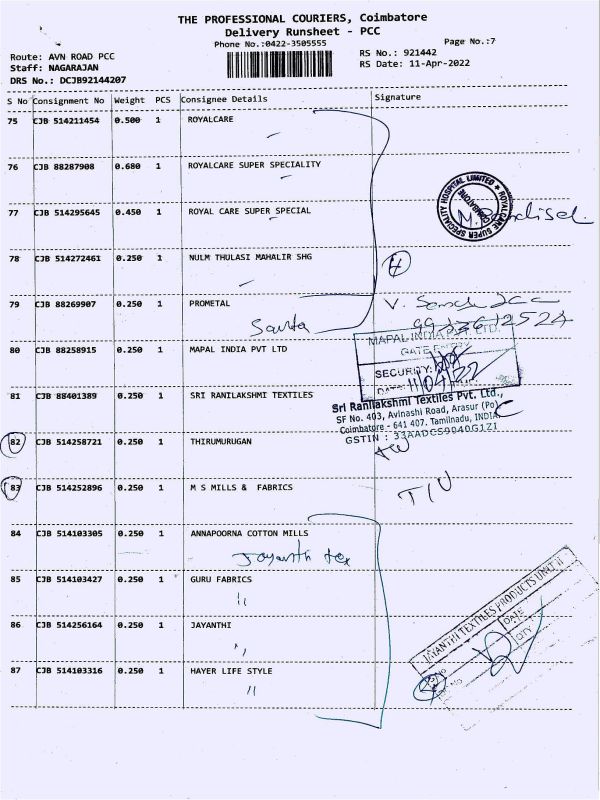 THE PROFESSIONAL COURIERS, Coimbatore
Delivery Runsheet - PCC
Phone No.:0422-3505555
Page No.:7
Route: AVN ROAD PCC
RS No.: 921442
Staff: NAGARAJAN
RS Date: 11-Apr-2022
DRS No.: DCJB92144207
S No Consignment No Weight PCS Consignee Details Signature
75 CJB 514211454 0.500 1 ROYALCARE
76 CJB 88287908 0.680 1 ROYALCARE SUPER SPECIALITY
ROYALCARE SUPER SPECIALITY HOSPITAL LIMITED
COIMBATORE
77 CJB 514295645 0.450 1 ROYAL CARE SUPER SPECIAL
78 CJB 514272461 0.250 1 NULM THULASI MAHALIR SHG
4
79 CJB 88269907 0.250 1 PROMETAL
V.
80 CJB 88258915 0.250 1 MAPAL INDIA PVT LTD
MAPAL INDIA PVT. LTD.
GATE ENTRY
SECURITY:
DATE: 11/04/22
81 CJB 88401389 0.250 1 SRI RANILAKSHMI TEXTILES
Sri Ranilakshmi Textiles Pvt. Ltd.,
SF No. 403, Avinashi Road, Arasur (Po)
Coimbatore - 641 407. Tamilnadu, INDIA.
GSTIN : 33AADCS9040G1ZI
82 CJB 514258721 0.250 1 THIRUMURUGAN
83 CJB 514252896 0.250 1 M S MILLS & FABRICS
84 CJB 514103305 0.250 1 ANNAPOORNA COTTON MILLS
Jayanth tex
85 CJB 514103427 0.250 1 GURU FABRICS
"
86 CJB 514256164 0.250 1 JAYANTHI
"
87 CJB 514103316 0.250 1 HAYER LIFE STYLE
"
JAYANTHI TEXTILES PRODUCTS UNIT II
DATE
QTY